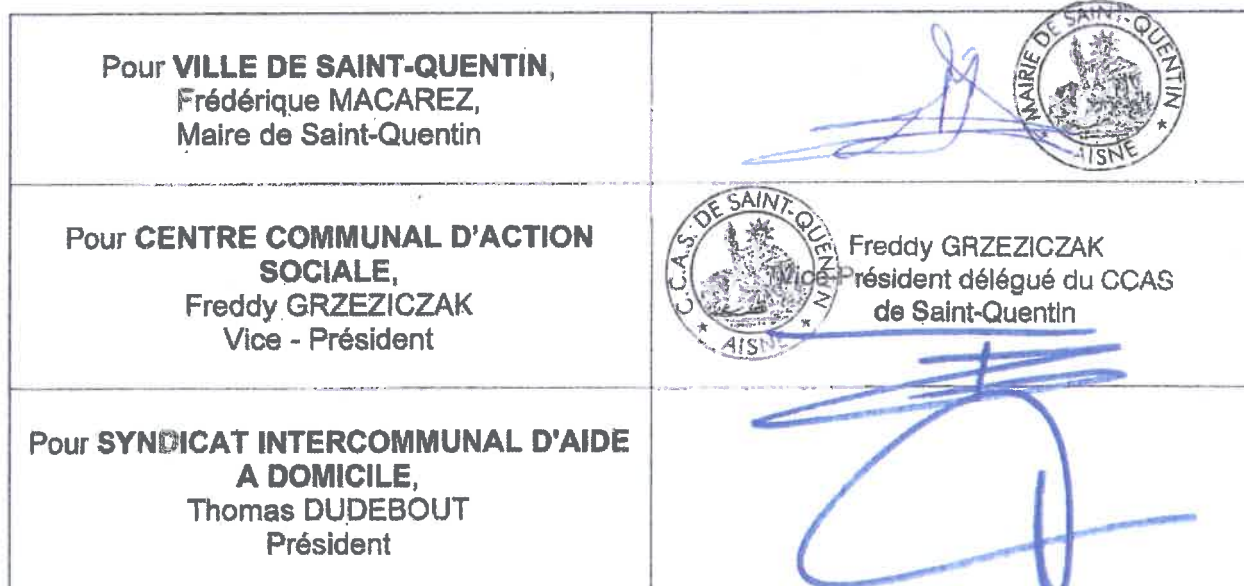 Pour VILLE DE SAINT-QUENTIN,
Frédérique MACAREZ,
Maire de Saint-Quentin
MAIRIE DE SAINT-QUENTIN
* AISNE *
Pour CENTRE COMMUNAL D'ACTION
SOCIALE,
Freddy GRZEZICZAK
Vice - Président
C.C.A.S. DE SAINT-QUENTIN
* AISNE *
Freddy GRZEZICZAK
Vice-Président délégué du CCAS
de Saint-Quentin
Pour SYNDICAT INTERCOMMUNAL D'AIDE
A DOMICILE,
Thomas DUDEBOUT
Président